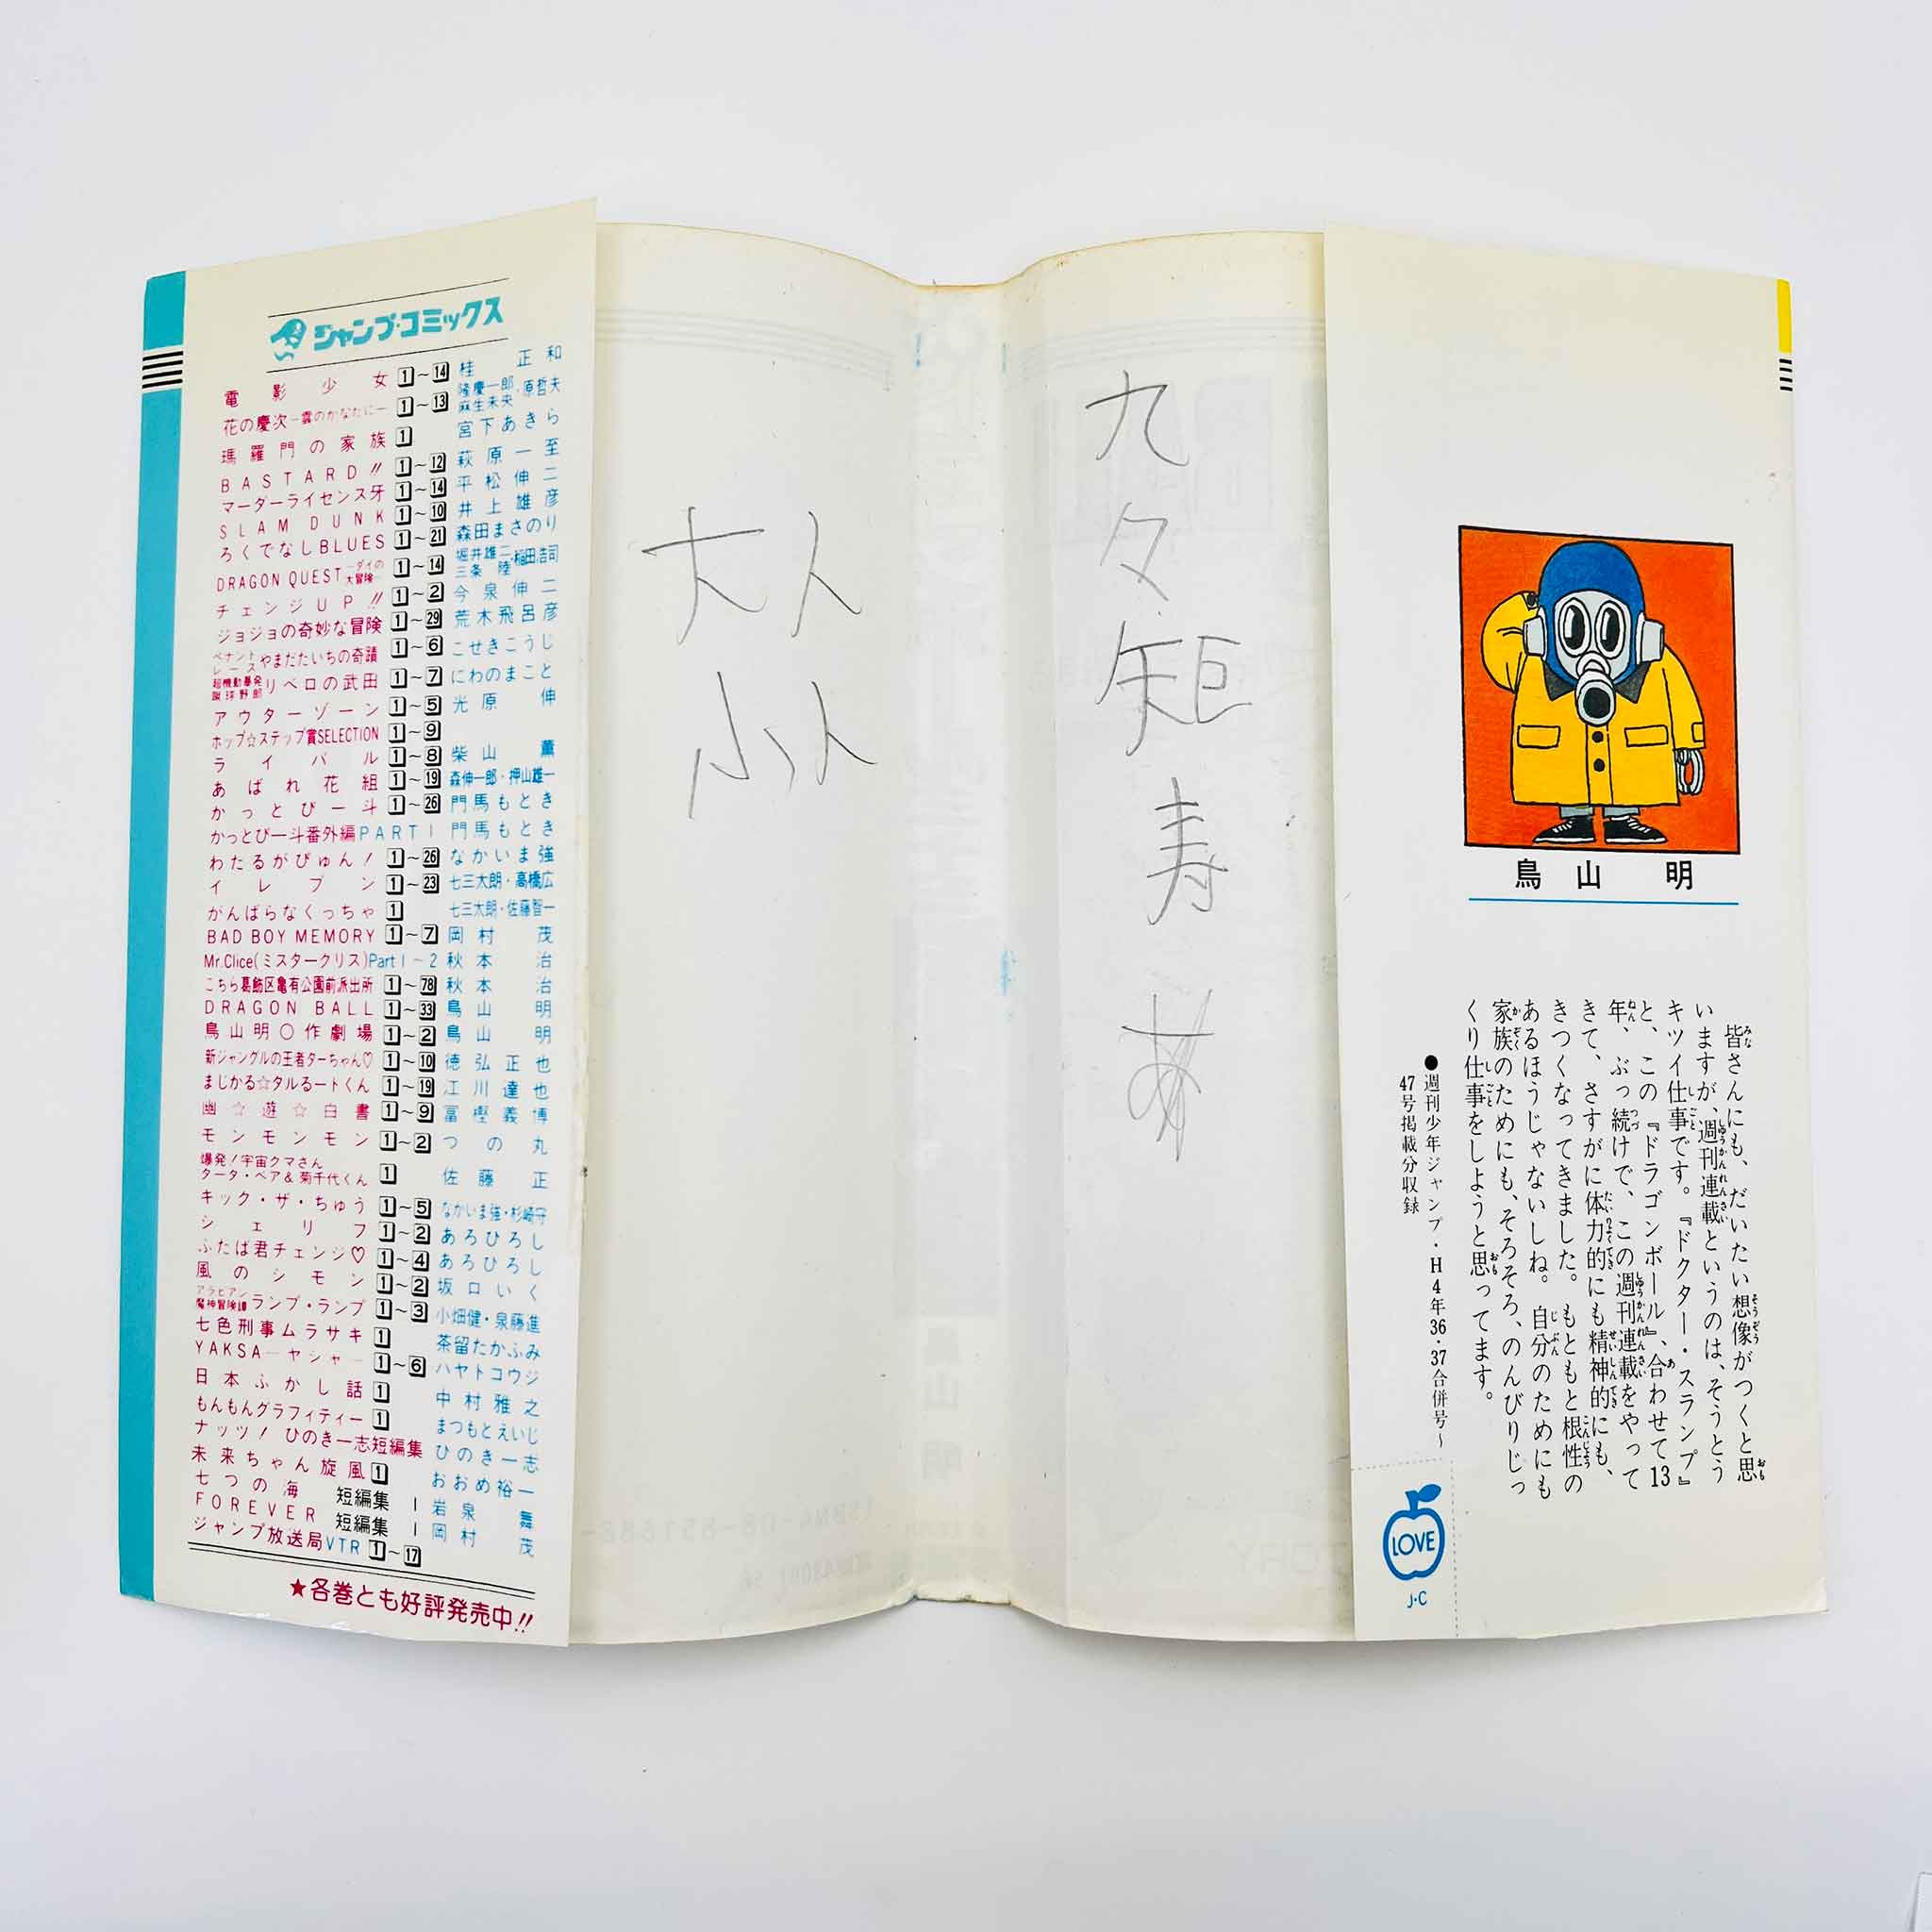 ジャンプ・コミックス
電影少女 1~14 桂正和
花の慶次―雲のかなたに― 1~13 隆慶一郎・原哲夫 麻生未央
瑪羅門の家族 1 宮下あきら
BASTARD!! 1~12 萩原一至
マーダーライセンス牙 1~14 平松伸二
SLAM DUNK 1~10 井上雄彦
ろくでなしBLUES 1~21 森田まさのり
DRAGON QUEST―ダイの大冒険― 1~14 堀井雄二・稲田浩司 三条陸
チェンジUP!! 1~2 今泉伸二
ジョジョの奇妙な冒険 1~29 荒木飛呂彦
ペナントレースやまだたいちの奇蹟 1~6 こせきこうじ
超機動暴発蹴球野郎リベロの武田 1~7 にわのまこと
アウターゾーン 1~5 光原伸
ホップ☆ステップ賞SELECTION 1~9
ライバル 1~8 柴山薫
あばれ花組 1~19 森伸一郎・押山雄一
かっとび一斗 1~26 門馬もとき
かっとび一斗番外編PART1 門馬もとき
わたるがぴゅん! 1~26 なかいま強
イレブン 1~23 七三太朗・高橋広
がんばらなくっちゃ 1 七三太朗・佐藤智一
BAD BOY MEMORY 1~7 岡村茂
Mr.Clice(ミスタークリス)Part1~2 秋本治
こちら葛飾区亀有公園前派出所 1~78 秋本治
DRAGON BALL 1~33 鳥山明
鳥山明〇作劇場 1~2 鳥山明
新ジャングルの王者ターちゃん♡ 1~10 徳弘正也
まじかる☆タルるートくん 1~19 江川達也
幽☆遊☆白書 1~9 冨樫義博
モンモンモン 1~2 つの丸
爆発!宇宙クマさん
タータ・ベア&菊千代くん 1 佐藤正
キック・ザ・ちゅう 1~5 なかいま強・杉崎守
シェリフ 1~2 あろひろし
ふたば君チェンジ♡ 1~4 あろひろし
風のシモン 1~2 坂口いく
アラビアン魔神冒険譚ランプ・ランプ 1~3 小畑健・泉藤進
七色刑事ムラサキ 1 茶留たかふみ
YAKSA―ヤシャ― 1~6 ハヤトコウジ
日本ふかし話 1 中村雅之
もんもんグラフィティー 1 まつもとえいじ
ナッツ! ひのき一志短編集 ひのき一志
未来ちゃん旋風 1 おおめ裕一
七つの海 短編集 1 岩泉舞
FOREVER 短編集 1 岡村茂
ジャンプ放送局VTR 1~17
★各巻とも好評発売中!!
九々矩寿
鳥山明
皆さんにも、だいたい想像がつくと思
いますが、週刊連載というのは、そうとう
キツイ仕事です。『ドクター・スランプ』
と、この『ドラゴンボール』、合わせて13
年、ぶっ続けで、この週刊連載をやって
きて、さすがに体力的にも精神的にも、
きつくなってきました。もともと根性の
あるほうじゃないしね。自分のためにも
家族のためにも、そろそろ、のんびりじっ
くり仕事をしようと思ってます。
●週刊少年ジャンプ・H4年36・37合併号~
47号掲載分収録
LOVE
J・C